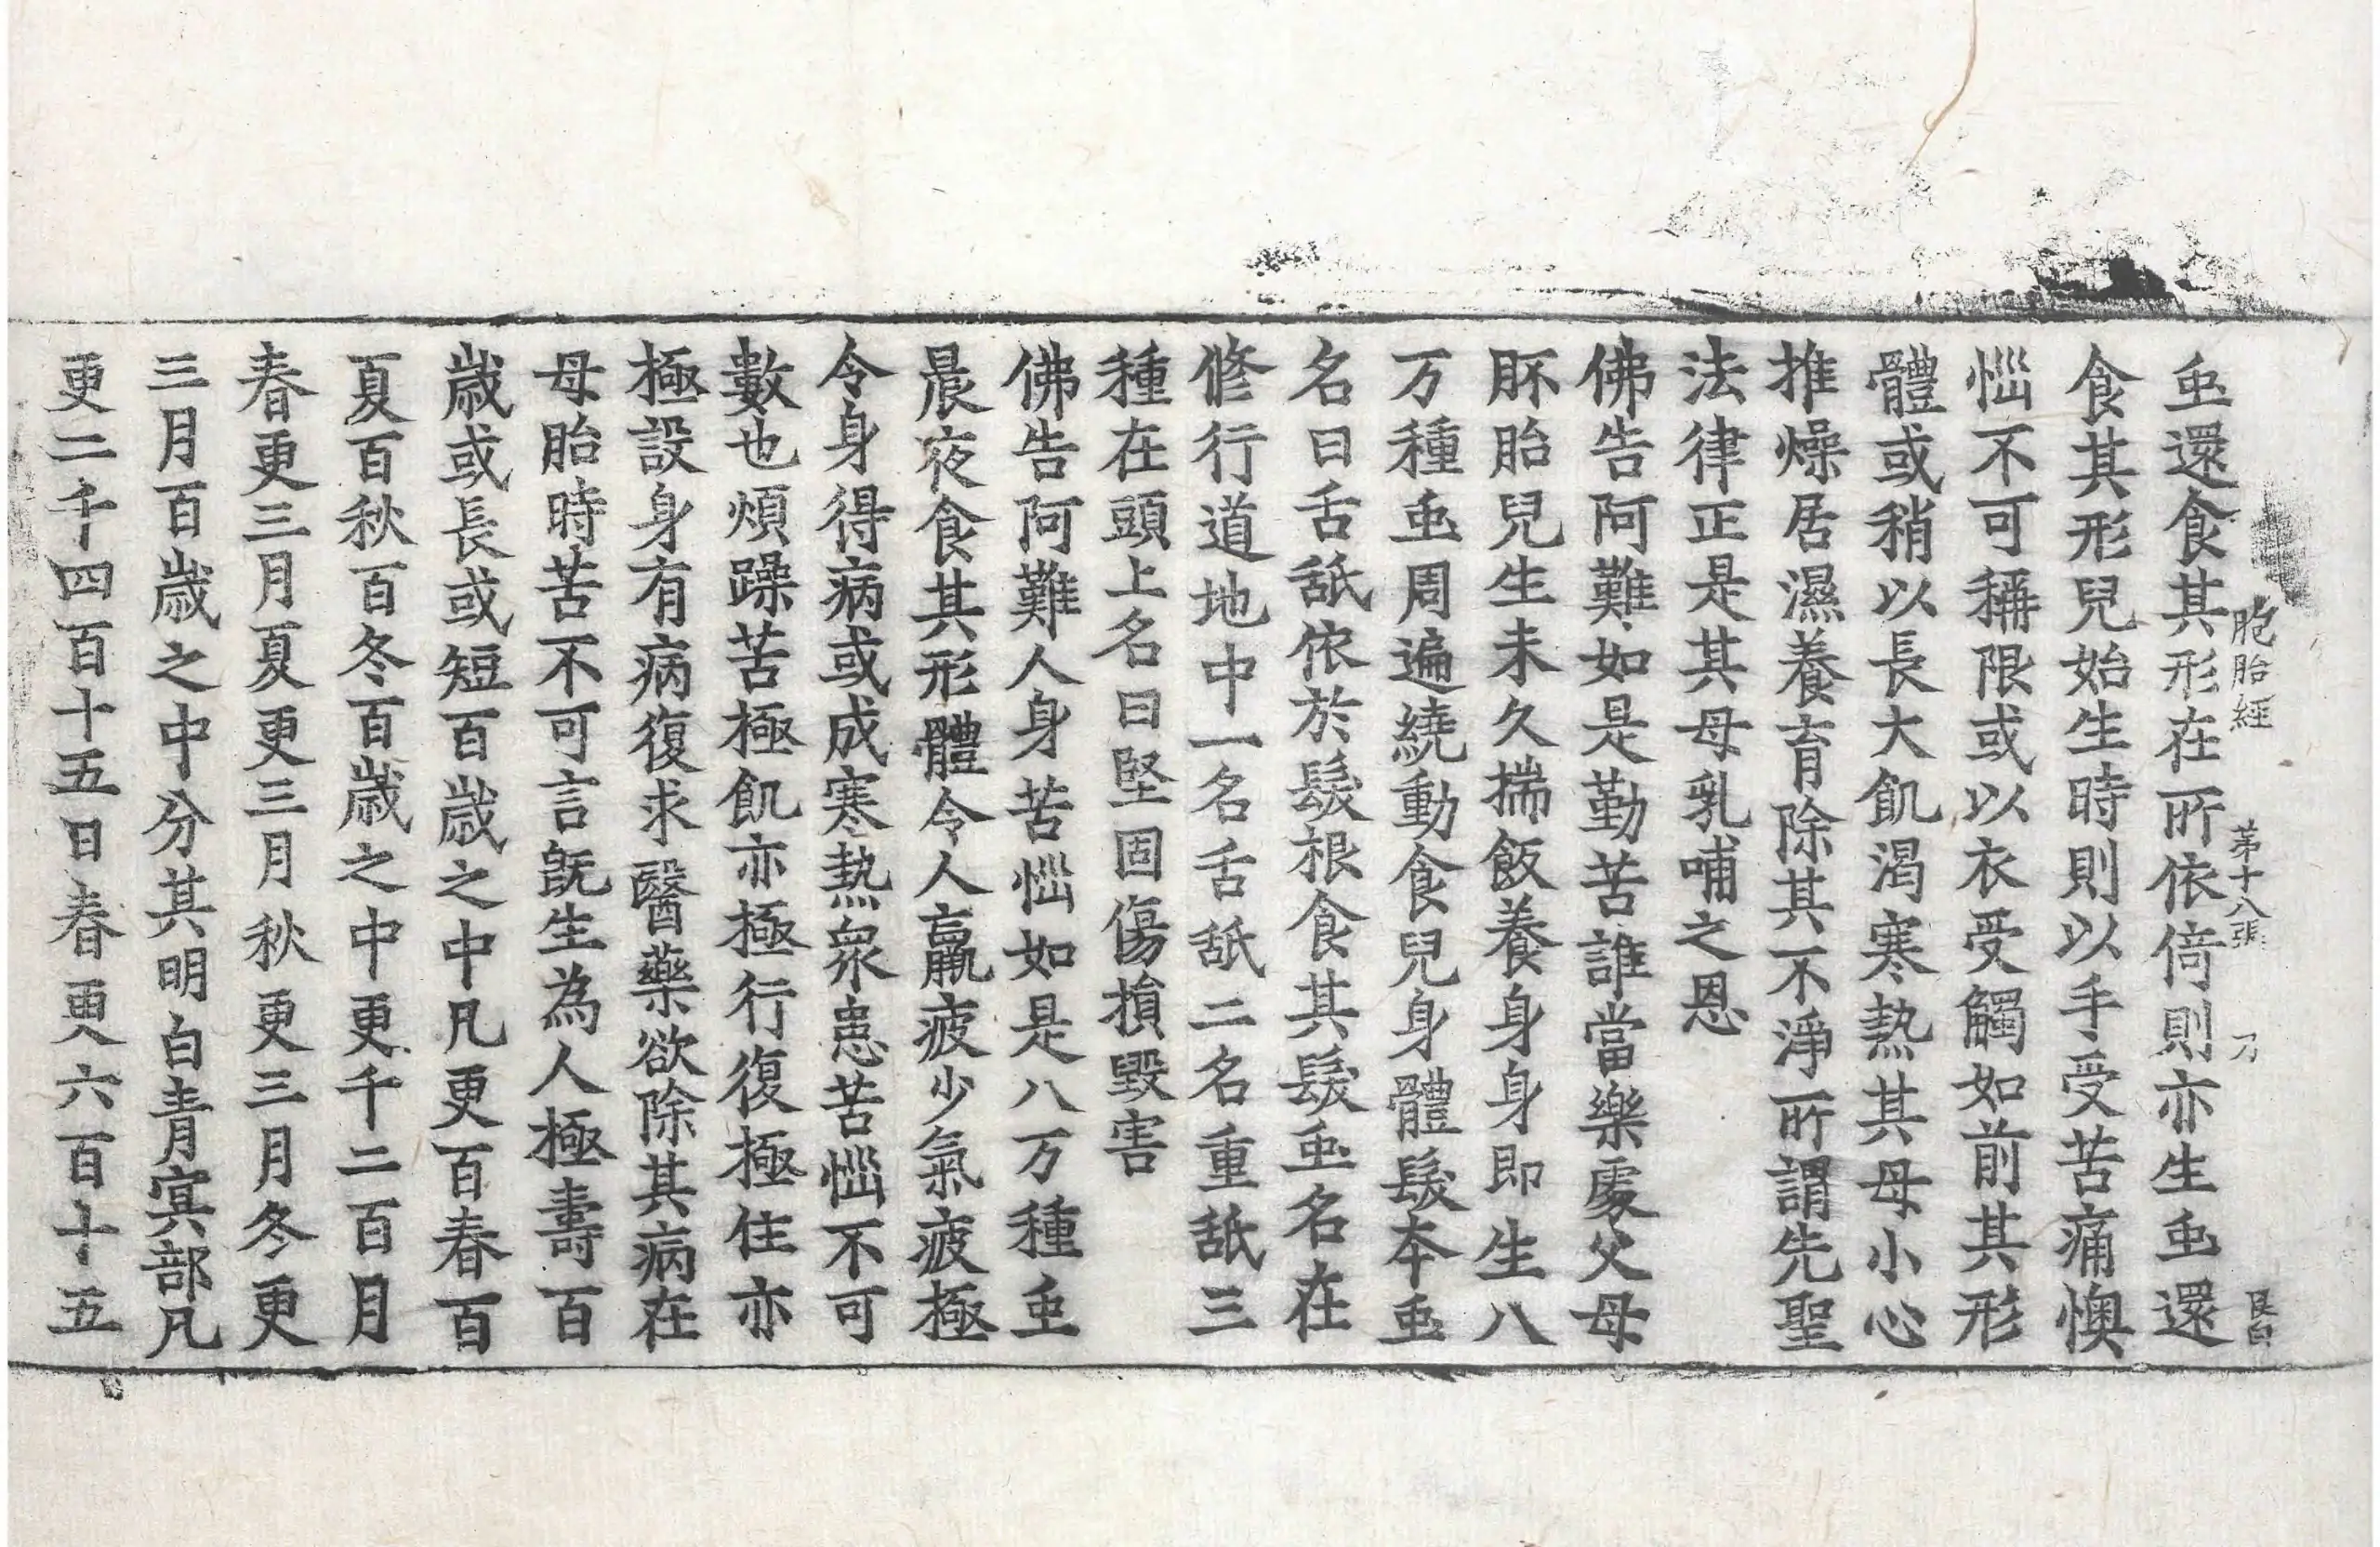 胞胎經 第十八張 刀 艮白
虫還食其形在所依倚則亦生虫還
食其形兒始生時則以手受苦痛懊
惱不可稱限或以衣受觸如前其形
體或稍以長大飢渴寒熱其母小心
推燥居濕養育除其不淨所謂先聖
法律正是其母乳哺之恩
佛告阿難如是勤苦誰當樂處父母
胚胎兒生未久揣飯養身身即生八
万種虫周遍繞動食兒身體髮本虫
名曰舌舐依於髮根食其髮虫名在
修行道地中一名舌舐二名重舐三
種在頭上名曰堅固傷損毀害
佛告阿難人身苦惱如是八万種虫
晨夜食其形體令人羸疲少氣疲極
令身得病或成寒熱衆患苦惱不可
數也煩躁苦極飢亦極行復極住亦
極設身有病復求醫藥欲除其病在
母胎時苦不可言旣生為人極壽百
歲或長或短百歲之中凡更百春百
夏百秋百冬百歲之中更千二百月
春更三月夏更三月秋更三月冬更
三月百歲之中分其明白青冥部凡
更二千四百十五日春更六百十五